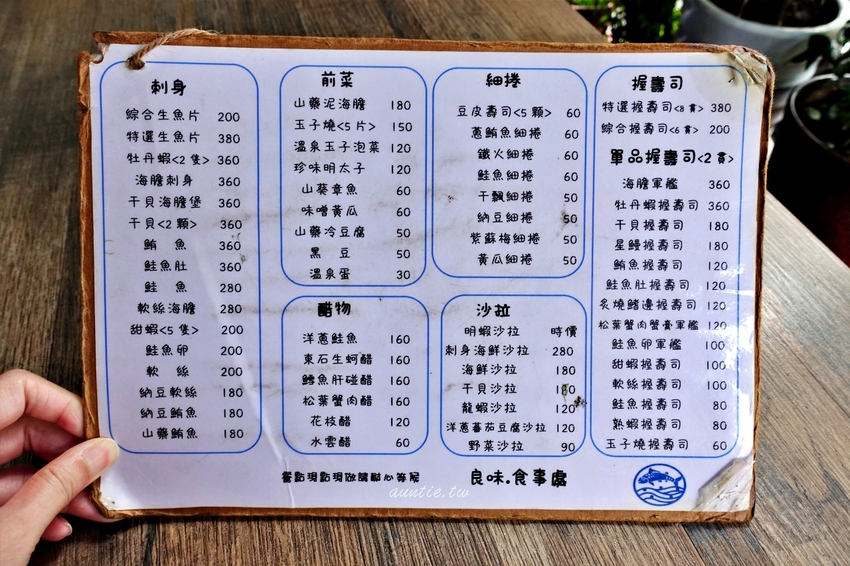 刺身
綜合生魚片 200
特選生魚片 380
牡丹蝦<2隻> 360
海膽刺身 360
干貝海膽堡 360
干貝<2顆> 360
鮪魚 360
鮭魚肚 360
鮭魚 280
軟絲海膽 280
甜蝦<5隻> 200
鮭魚卵 200
軟絲 200
納豆軟絲 180
納豆鮪魚 180
山藥鮪魚 180
前菜
山藥泥海膽 180
玉子燒<5片> 150
溫泉玉子泡菜 120
珍味明太子 120
山葵章魚 60
味噌黃瓜 60
山藥冷豆腐 50
黑豆 50
溫泉蛋 30
醋物
洋蔥鮭魚 160
東石生蚵醋 160
鱈魚肝碰醋 160
松葉蟹肉醋 160
花枝醋 120
水雲醋 60
細捲
豆皮壽司<5顆> 60
蔥鮪魚細捲 60
鐵火細捲 60
鮭魚細捲 60
干瓢細捲 50
納豆細捲 50
紫蘇梅細捲 50
黃瓜細捲 50
沙拉
明蝦沙拉 時價
刺身海鮮沙拉 280
海鮮沙拉 180
干貝沙拉 180
龍蝦沙拉 120
洋蔥蕃茄豆腐沙拉 120
野菜沙拉 90
握壽司
特選握壽司<8貫> 380
綜合握壽司<6貫> 200
單品握壽司<2貫>
海膽軍艦 360
牡丹蝦握壽司 360
干貝握壽司 180
星鰻握壽司 180
鮪魚握壽司 120
鮭魚肚握壽司 120
炙燒鰭邊握壽司 120
松葉蟹肉蟹膏軍艦 120
鮭魚卵軍艦 100
甜蝦握壽司 100
軟絲握壽司 100
鮭魚握壽司 80
熟蝦握壽司 80
玉子燒握壽司 60
餐點現點現做請耐心等候
良味.食事處
auntie.tw